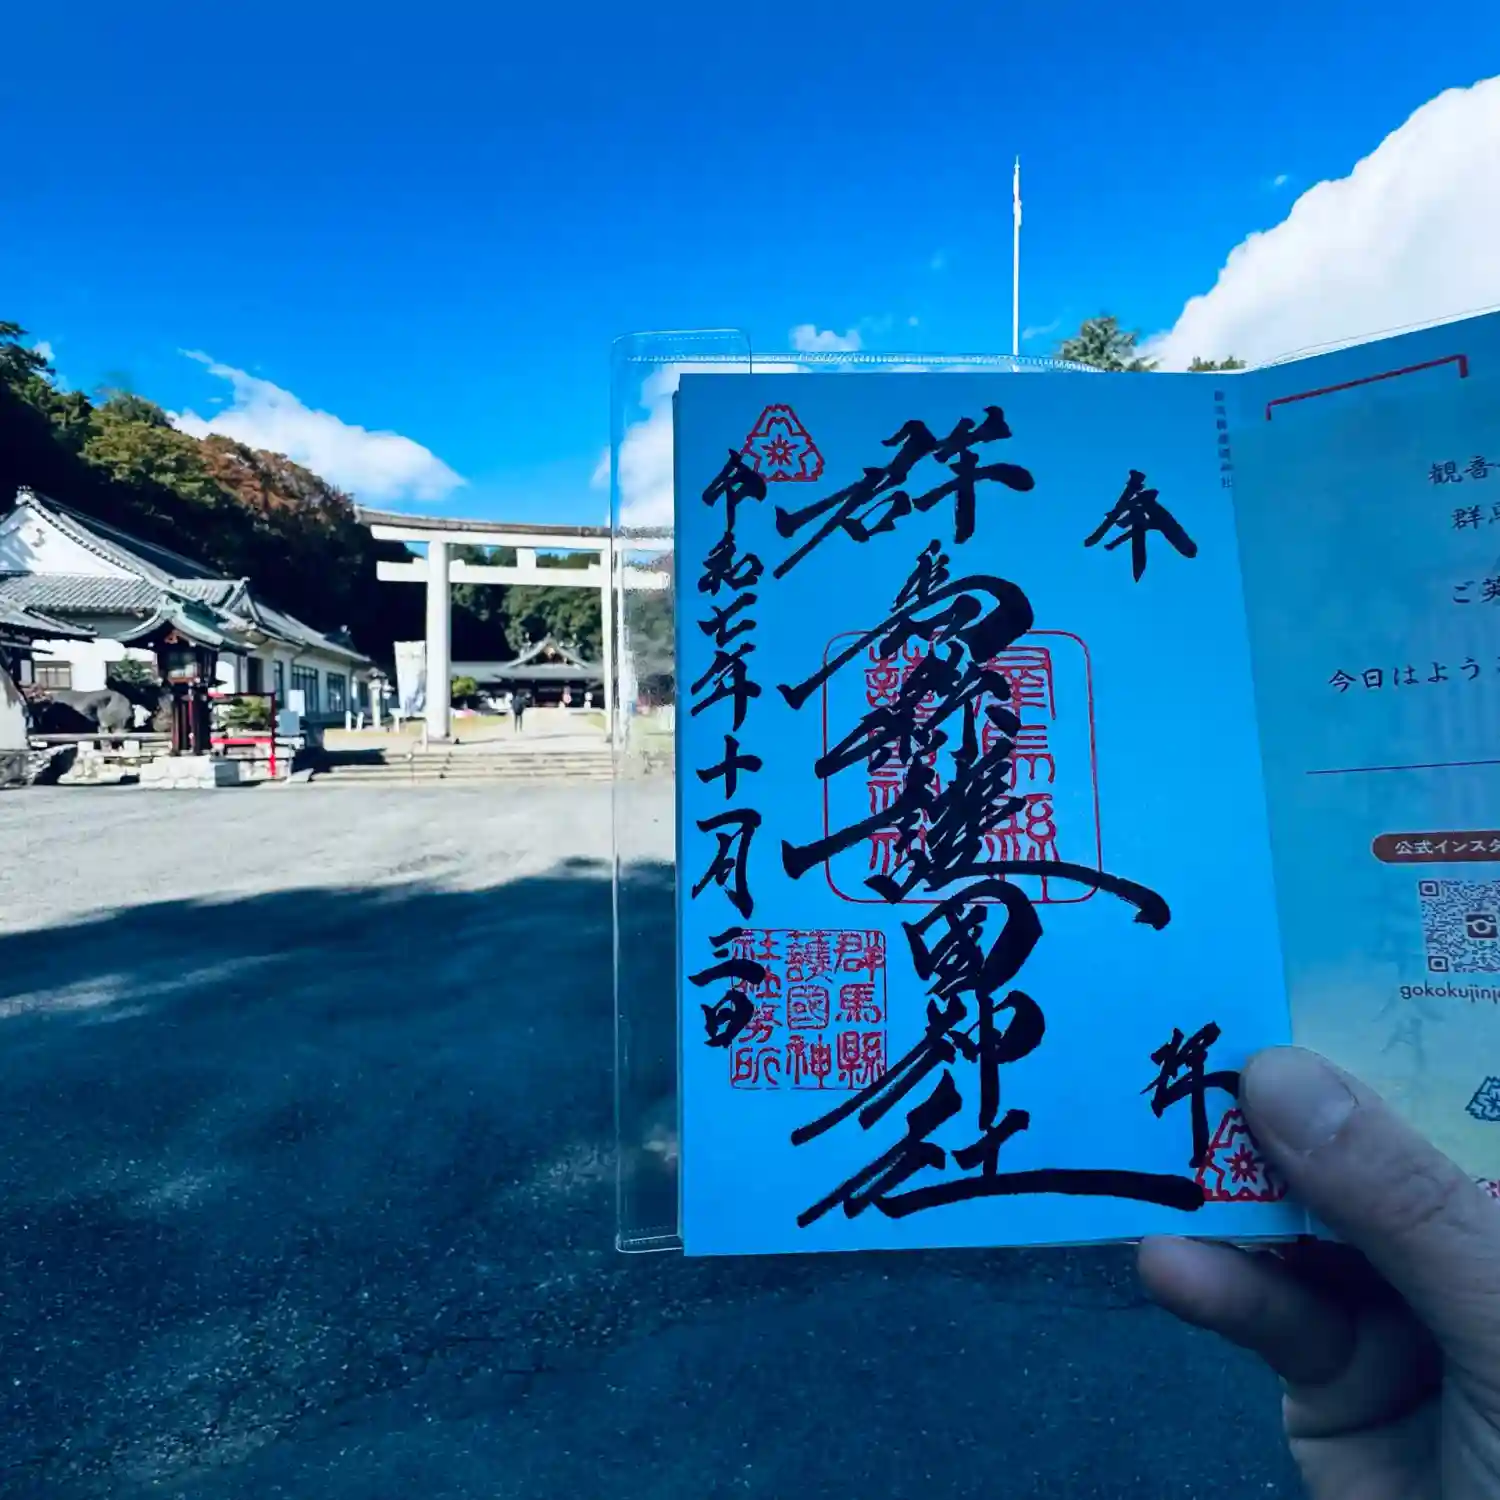 奉拝
群馬縣護國神社
令和七年十月三日
群馬縣
護國神
社社務所
群馬縣
護國神社
群馬縣護國神社
観音
群馬
今日はよう
公式インスタ
gokokujinj